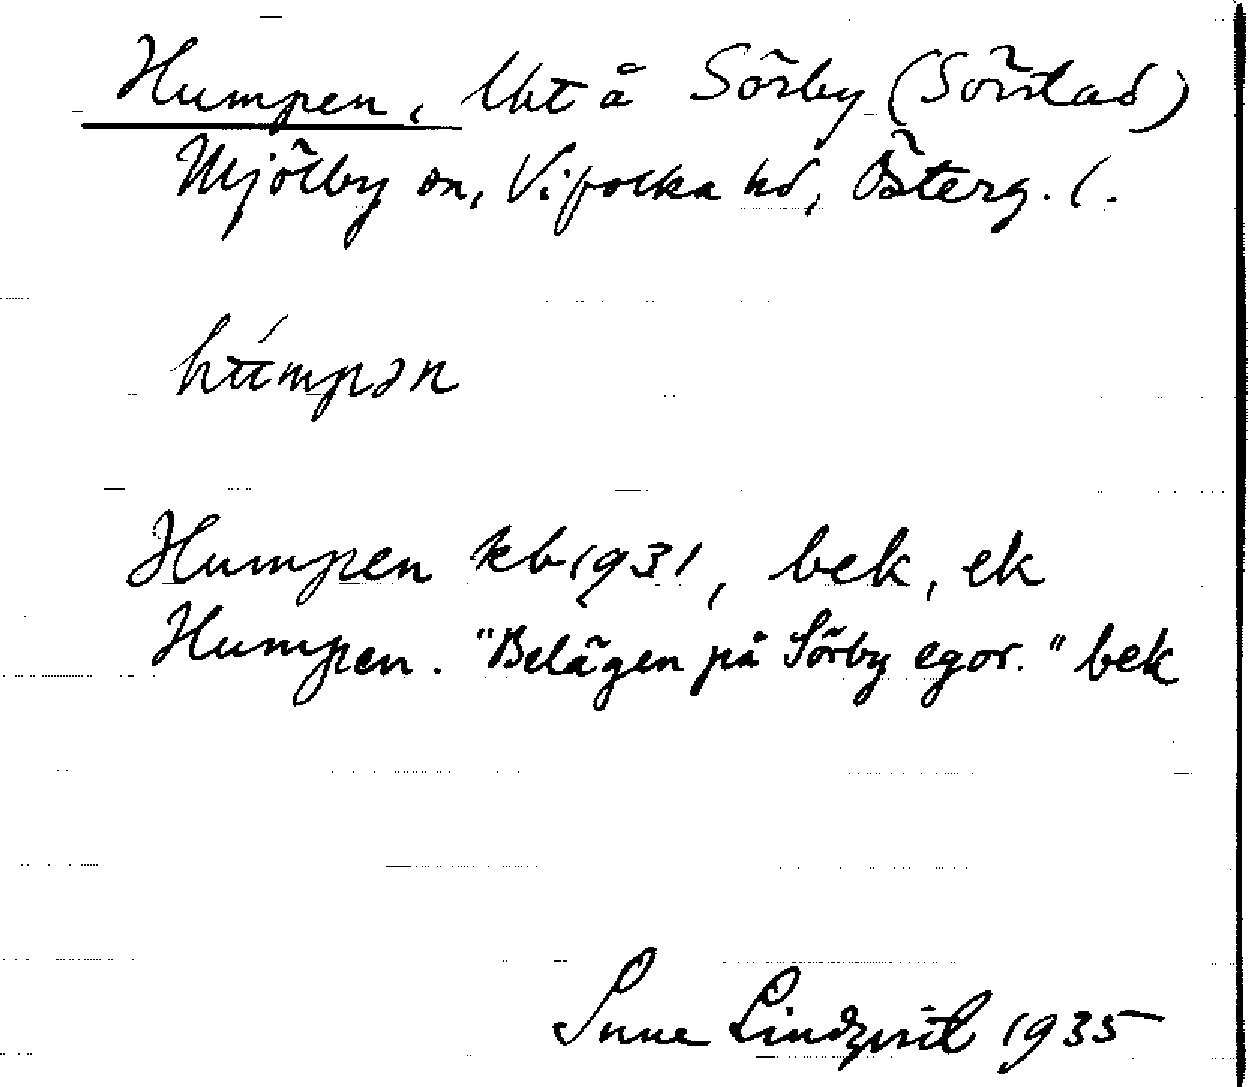 Humpen, lht å Sörby (Sörstad)
Mjölby sn, Vifolka hd, Österg. l.
húmpən
Humpen kb 1931, bek, ek
Humpen. "Belägen på Sörby egor." bek
Sune Lindqvist 1935